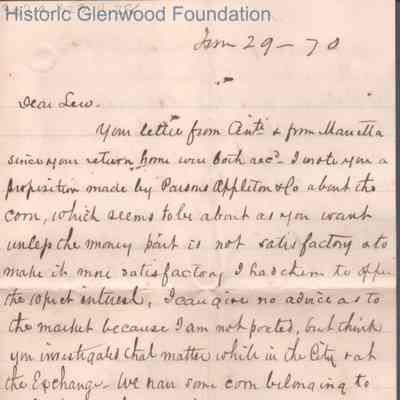 Historic Glenwood Foundation
Jan 29 - 70
Dear Lew.
Your letter from Cinti & from Marietta
since your return home were both recd. I wrote you a
proposition made by Parsons Appleton & Co about the
corn, which seems to be about as you want
unless the money part is not satisfactory & to
make it more satisfactory I had them to offer
the 10 pr ct interest, I can give no advice as to
the market because I am not posted, but think
you investigated that matter while in the City & at
the Exchange - We have some corn belonging to